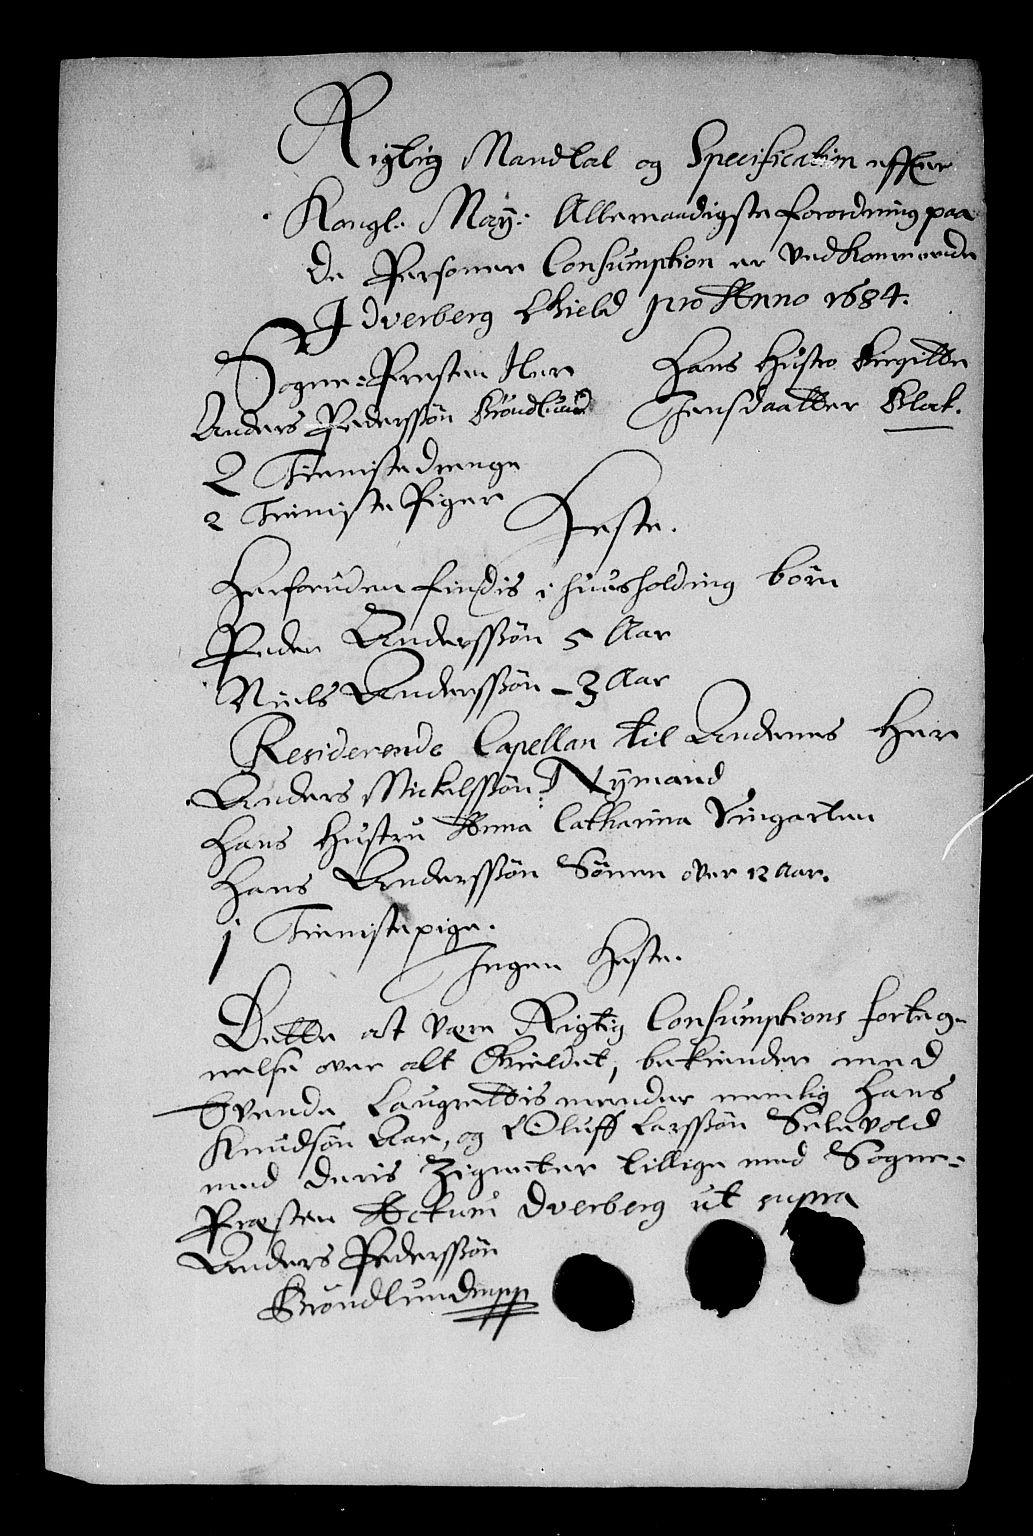 Rigtig Mandtal og Specification efter
Kongl: May: Allernaadigste forordning paa
De Personer Consumption er vedkommende
J Dverberg Gield pro Anno 1684.
Sogne-Presten Herr
Anders Pederssøn Brøndlund
Hans Hustro Birgitte
Jensdaatter Blat.
2 Tienniste drenge
2 Tienniste Piger
Heste.
Herforuden findis i huusholding børn
Peder Anderssøn 5 Aar
Niels Anderssøn – 3 Aar
Residerende Capellan til Andennes Herr
Anders Mickelssøn Nÿmand
Hans Hustru Anna Catharina Vingarten
Hans Anderssøn Sønnen over 12 Aar.
j Tiennistepige.
Ingen Heste.
Dette at være Rigtig Consumptions forteg-
nelse over alt Gieldet, bekiender med
Tvende Laugrettis mender nemlig Hans
Knudsøn Aae, og Oluff Larssøn Selevold
med deris Zigneter tillige med Sogne-
Præsten Actum Dverberg ut supra
Anders Pederssøn
Brøndlund mpp